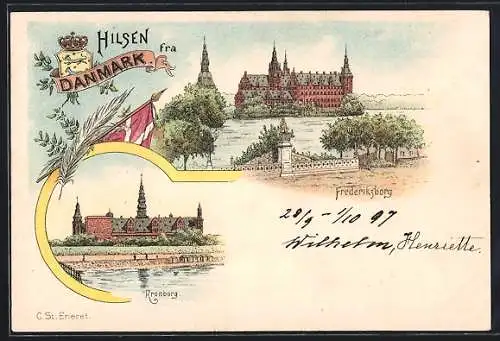 HILSEN
fra
DANMARK.
Frederiksborg
28/9 - 1/10 97
Wilhelm, Henriette.
Kronborg.
C. St. Eneret.